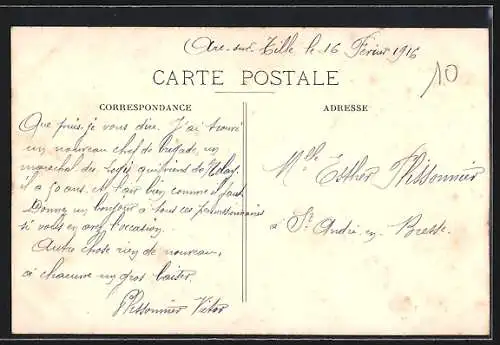 Arc-sur-Tille le 16 Février 1916
10
CARTE POSTALE
CORRESPONDANCE
ADRESSE
Que puis-je vous dire. J'ai trouvé
un nouveau chef de brigade, un
marechal des Logis qui vient de
il a 30 ans. et l'air bien comme il faut.
Donnez un bonjour à tous ces permissionnaires
si vous en avez l'occasion.
Autre chose rien de nouveau,
à chacune un gros baiser.
Plissonnier Victor
Mlle Esther Plissonnier
à St André en Bresse.